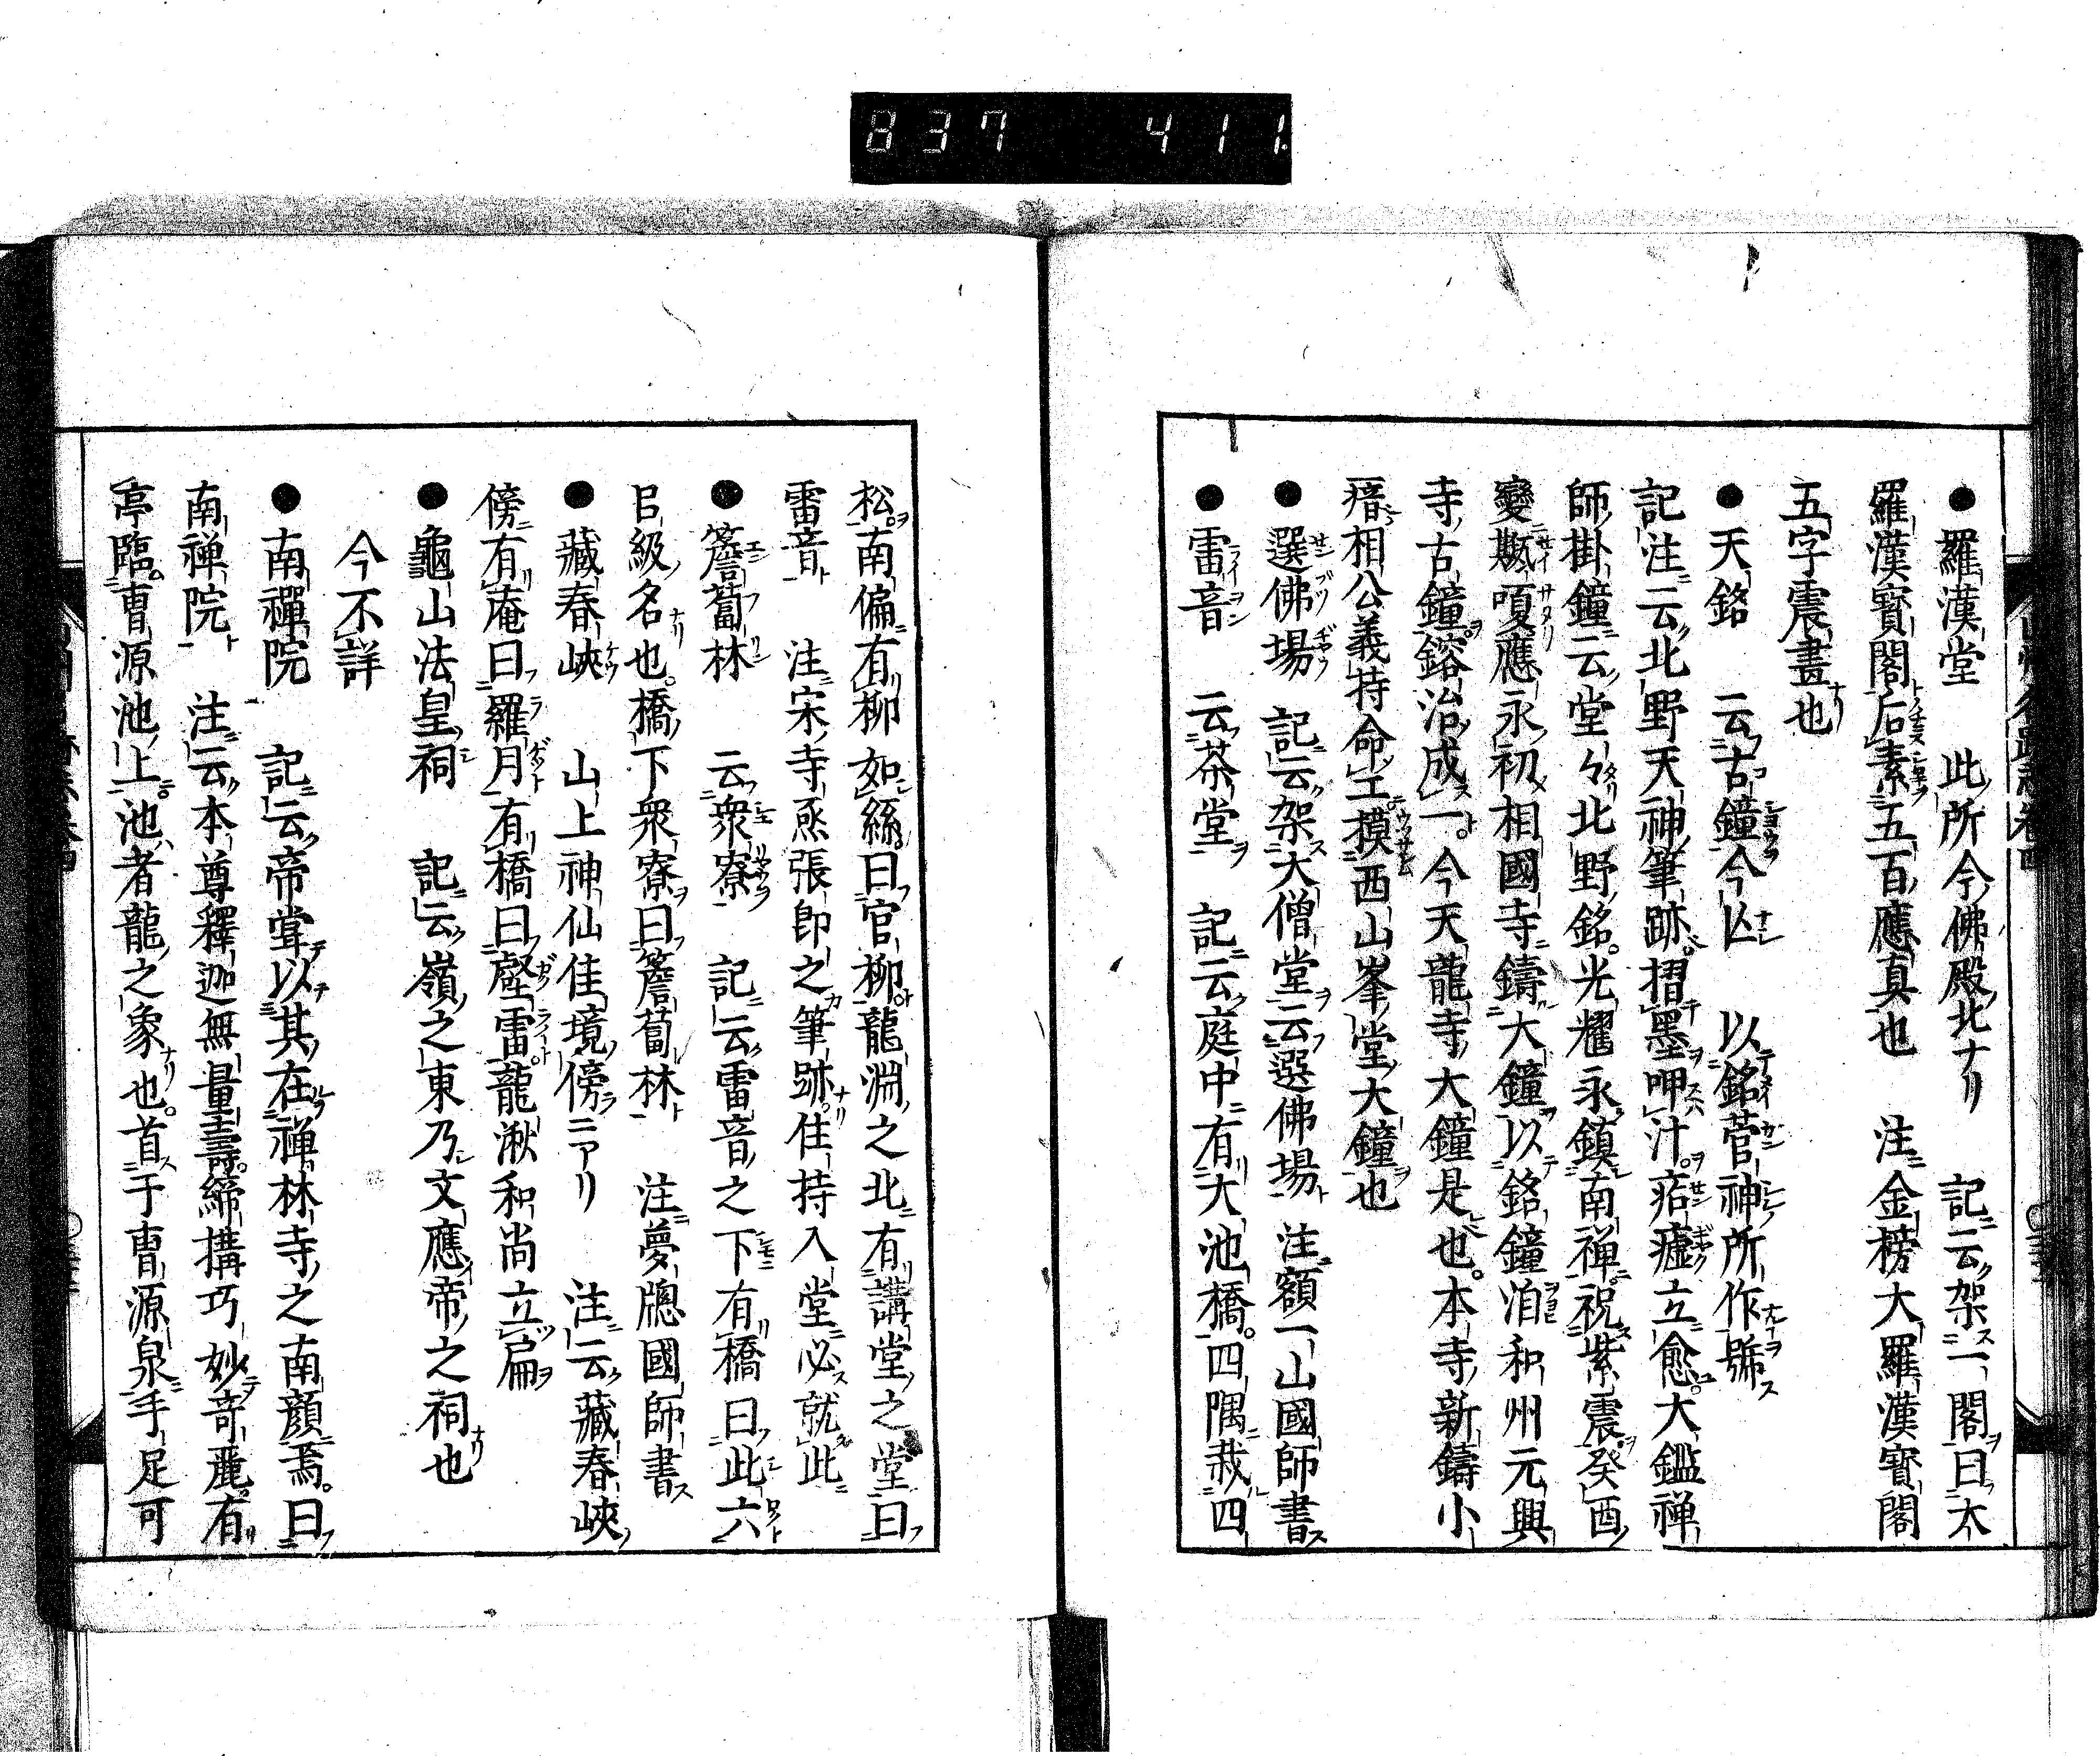 837 411
●羅漢堂 此所今佛殿北ナリ 記云架一閣曰大
羅漢寶閣后素五百應真也 注金榜大羅漢寶閣
五字震畫也
●天銘 云古鐘今亾 以銘菅神所作號
記注云北野天神筆跡摺墨呷汁痁瘧立愈大鑑禅
師掛鐘云堂々北野銘光耀永鎮南禅祝紫震癸酉
變嗄應永初相國寺鑄大鐘以銘鐘洎和州元興
寺古鐘鎔冶成一今天龍寺大鐘是也本寺新鑄小
相公義持命工摸西山峯堂大鐘也
●選佛場 記云架大僧堂云選佛場 注額一山國師書
●雷音 云茶堂 記云庭中有大池橋四隅栽四
松南偏有柳如絲曰官柳龍淵之北有講堂之堂曰
雷音 注宋寺丞張即之筆跡住持入堂必就此
●簷蔔林 云衆寮 記云雷音之下有橋曰此六
㠯級名也橋下衆寮曰簷蔔林 注夢牕國師書
●藏春峽 山上神仙佳境傍ニアリ 注云藏春峽
傍有庵曰羅月有橋曰壑雷龍湫和尚立扁
●龜山法皇祠 記云嶺之東乃文應帝之祠也
今不詳
●南禪院 記云帝甞以其在禅林寺之南顔焉曰
南禅院 注云本尊釋迦無量壽締搆巧妙竒麗有
亭臨曹源池上池者龍之象也首于曹源泉手足可